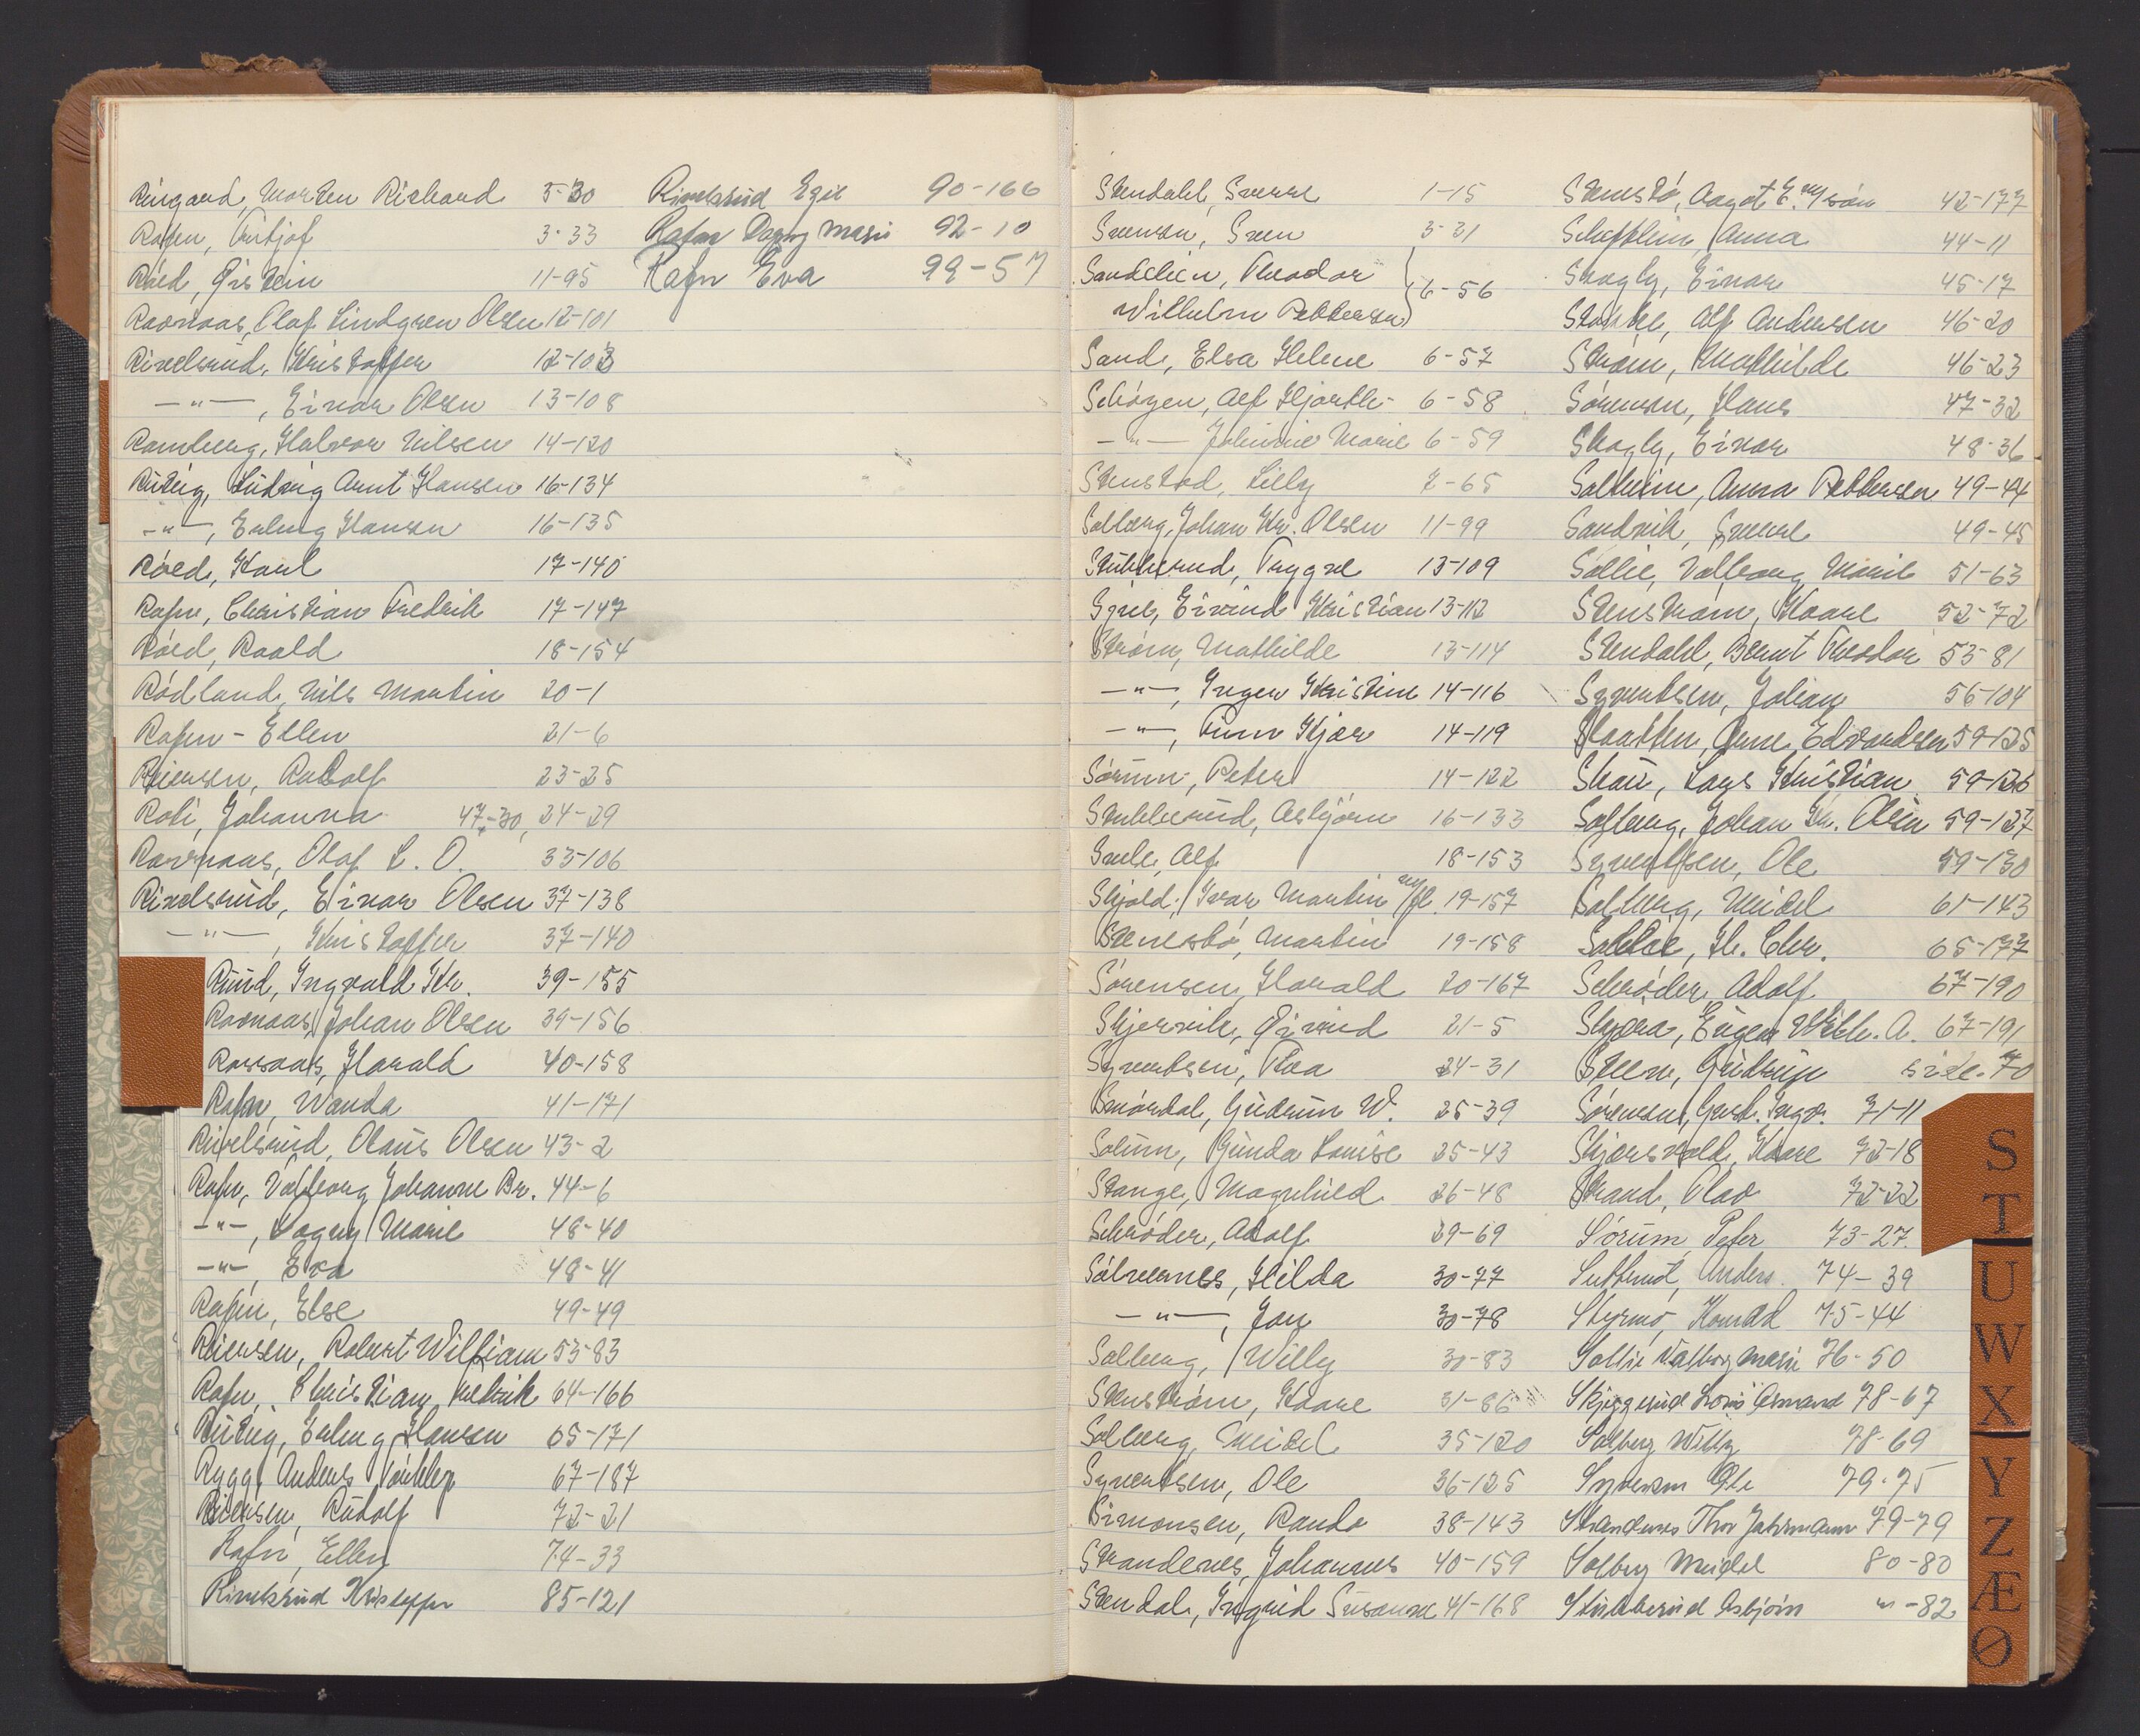 Ringard, Morten Richard 3-30
Rafen, Fritjof 3-33
Røed, Øistein 11-95
Ravnaas, Olaf Lindgren Olsen 12-101
Rivelsrud, Kristoffer 12-103
—"—, Einar Olsen 13-108
Ramberg, Halvor Nilsen 14-120
Rutzig, Ludvig Arnt Hansen 16-134
—"—, Erling Hansen 16-135
Røed, Karl 17-140
Rafn, Christian Fredrik 17-147
Røed, Roald 18-154
Rødland, Nils Martin 20-1
Rafen - Ellen 21-6
Reiersen, Rudolf 23-25
Roti, Johanna 47-30, 24-29
Ravnaas, Olaf L. O. 33-106
Rivelsrud, Einar Olsen 37-138
—"—, Kristoffer 37-140
Ruud, Ingvald Kr. 39-155
Ravnaas, Johan Olsen 39-156
Ravnaas, Harald 40-158
Rafn, Wanda 41-171
Rivelsrud, Olaus Olsen 43-2
Rafn, Valborg Johanne Br. 44-6
—"—, Dagny Marie 48-40
—"—, Eva 48-41
Rafn, Else 49-49
Reiersen, Robert William 53-83
Rafn, Christian Fredrik 64-166
Rutzig, Erling Hansen 65-171
Rygg, Anders 67-187
Reiersen, Rudolf 72-21
Rafn, Ellen 74-33
Rivelsrud Kristoffer 85-121
Rivelsrud Egil 90-166
Rafn Dagny Marie 92-10
Rafn Eva 99-57
Stendahl, Sverre 1-15
Svensen, Sven 3-31
Sandelien, Theodor
Wilhelm Pettersen 6-56
Sand, Elsa Helene 6-57
Schøyen, Alf Hjorth- 6-58
—"— Johinnie Marie 6-59
Stenstad, Lilly 7-65
Solberg, Johan Kr. Olsen 11-99
Stubberud, Trygve 13-109
Eivind Kristian 13-112
Strøm, Mathilde 13-114
—"—, Inger Kristine 14-116
—"—, Finn Kjær 14-119
Sørum, Peter 14-122
Stubberud, Asbjørn 16-133
Alf 18-153
Skjold, Ivar Martin 19-157
Stenesbø, Martin 19-158
Sørensen, Harald 20-167
Skjervik, Øivind 21-5
Syvertsen, Thea 24-31
Smørdal, Gudrun W. 25-39
Solum, Gunda Louise 25-43
Stange, Magnhild 26-48
Schrøder, Adolf 29-69
Sølvernes, Hilda 30-77
—"—, Jon 30-78
Solberg, Willy 30-83
Stenstrøm, Kaare 31-86
Solberg, Meidel 35-120
Syvertsen, Ole 36-125
Simonsen, Randa 38-143
Strandenes, Johannes 40-159
Stendal, Ingrid Susanne 41-168
Aagot E. 42-177
Anna 44-11
Skogly, Einar 45-17
Støkke, Alf Andersen 46-20
Strøm, Mathilde 46-23
Sørensen, Hans 47-32
Skogly, Einar 48-36
Solheim, Anna Pettersen 49-44
Sandvik, Sverre 49-45
Sollie, Valborg Marie 51-63
Stenstrøm, Kaare 52-72
Stendahl, Bernt Theodor 53-81
Syvertsen, Johan 56-104
Slaatten, Arne Edvardsen 59-125
Skau, Lars Kristian 59-126
Solberg, Johan Kr. Olsen 59-127
Syvertsen, Ole 59-130
Solberg, Meidel 61-143
Sollie, H. Chr. 65-177
Schrøder, Adolf 67-190
Eugen A. 67-191
Steen, Gudrun side 70
Sørensen, Gust. Ingv. 71-11
Skjærsvold, Kaare 72-18
Strand, Olav 72-22
Sørum, Peter 73-27
Anders 74-39
Styrmo, Konrad 75-44
Sollie Valborg Marie 76-50
Skjeggerud Lovis Osmand 78-67
Solberg Willy 78-69
Syversen Ole 79-75
Strandenes Thor Johrmann 79-79
Solberg Meidel 80-80
Stubberud Asbjørn " -82
S
T
U
W
X
Y
Z
Æ
Ø